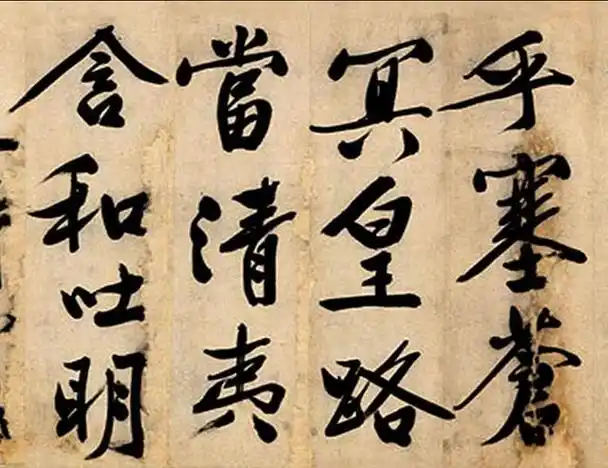 乎塞蒼
冥皇路
當清夷
含和吐明